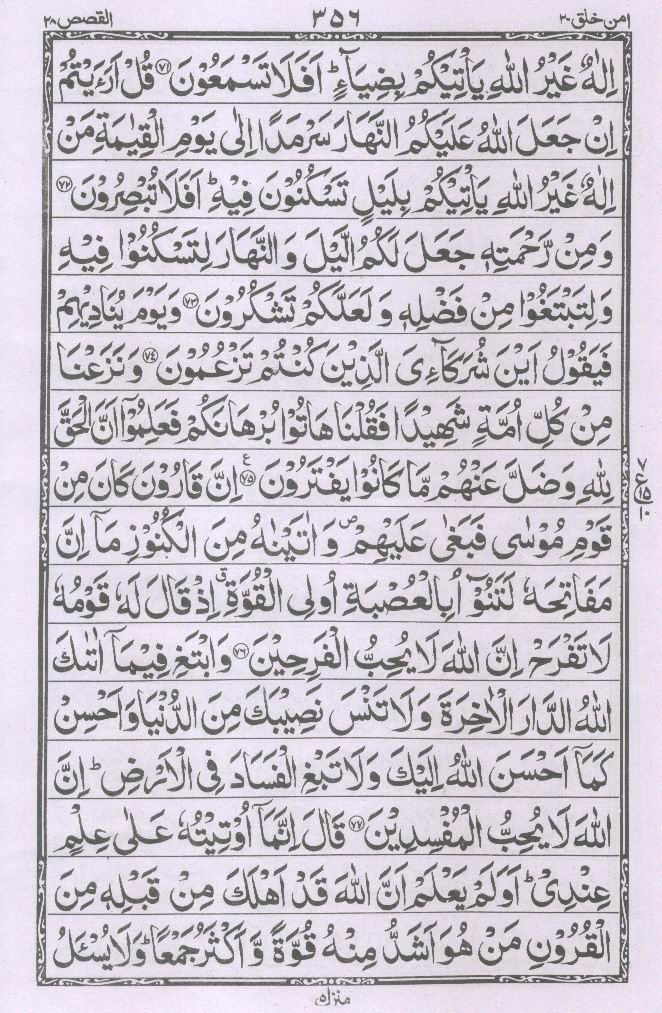 امن خلق ٢٠ ٣٥٦ القصص ٢٨
اِلٰهٌ غَيْرُ اللّٰهِ يَاْتِيْكُمْ بِضِيَآءٍ ؕ اَفَلَا تَسْمَعُوْنَ ﴿۷۱﴾ قُلْ اَرَءَيْتُمْ
اِنْ جَعَلَ اللّٰهُ عَلَيْكُمُ النَّهَارَ سَرْمَدًا اِلٰى يَوْمِ الْقِيٰمَةِ مَنْ
اِلٰهٌ غَيْرُ اللّٰهِ يَاْتِيْكُمْ بِلَيْلٍ تَسْكُنُوْنَ فِيْهِ ؕ اَفَلَا تُبْصِرُوْنَ ﴿۷۲﴾
وَمِنْ رَّحْمَتِهٖ جَعَلَ لَكُمُ الَّيْلَ وَالنَّهَارَ لِتَسْكُنُوْا فِيْهِ
وَلِتَبْتَغُوْا مِنْ فَضْلِهٖ وَلَعَلَّكُمْ تَشْكُرُوْنَ ﴿۷۳﴾ وَيَوْمَ يُنَادِيْهِمْ
فَيَقُوْلُ اَيْنَ شُرَكَآءِىَ الَّذِيْنَ كُنْتُمْ تَزْعُمُوْنَ ﴿۷٤﴾ وَنَزَعْنَا
مِنْ كُلِّ اُمَّةٍ شَهِيْدًا فَقُلْنَا هَاتُوْا بُرْهَانَكُمْ فَعَلِمُوْۤا اَنَّ الْحَقَّ
لِلّٰهِ وَضَلَّ عَنْهُمْ مَّا كَانُوْا يَفْتَرُوْنَ ﴿۷۵﴾ ع اِنَّ قَارُوْنَ كَانَ مِنْ
٧ ع ١٥ ١٠
قَوْمِ مُوْسٰى فَبَغٰى عَلَيْهِمْ ص وَاٰتَيْنٰهُ مِنَ الْكُنُوْزِ مَاۤ اِنَّ
مَفَاتِحَهٗ لَتَنُوْٓاُ بِالْعُصْبَةِ اُولِى الْقُوَّةِ ق اِذْ قَالَ لَهٗ قَوْمُهٗ
لَا تَفْرَحْ اِنَّ اللّٰهَ لَا يُحِبُّ الْفَرِحِيْنَ ﴿۷۶﴾ وَابْتَغِ فِيْمَاۤ اٰتٰىكَ
اللّٰهُ الدَّارَ الْاٰخِرَةَ وَلَا تَنْسَ نَصِيْبَكَ مِنَ الدُّنْيَا وَاَحْسِنْ
كَمَاۤ اَحْسَنَ اللّٰهُ اِلَيْكَ وَلَا تَبْغِ الْفَسَادَ فِى الْاَرْضِ ؕ اِنَّ
اللّٰهَ لَا يُحِبُّ الْمُفْسِدِيْنَ ﴿۷۷﴾ قَالَ اِنَّمَاۤ اُوْتِيْتُهٗ عَلٰى عِلْمٍ
عِنْدِىْ ؕ اَوَلَمْ يَعْلَمْ اَنَّ اللّٰهَ قَدْ اَهْلَكَ مِنْ قَبْلِهٖ مِنَ
الْقُرُوْنِ مَنْ هُوَ اَشَدُّ مِنْهُ قُوَّةً وَّاَكْثَرُ جَمْعًا ؕ وَلَا يُسْـَٔلُ
منزل ٥